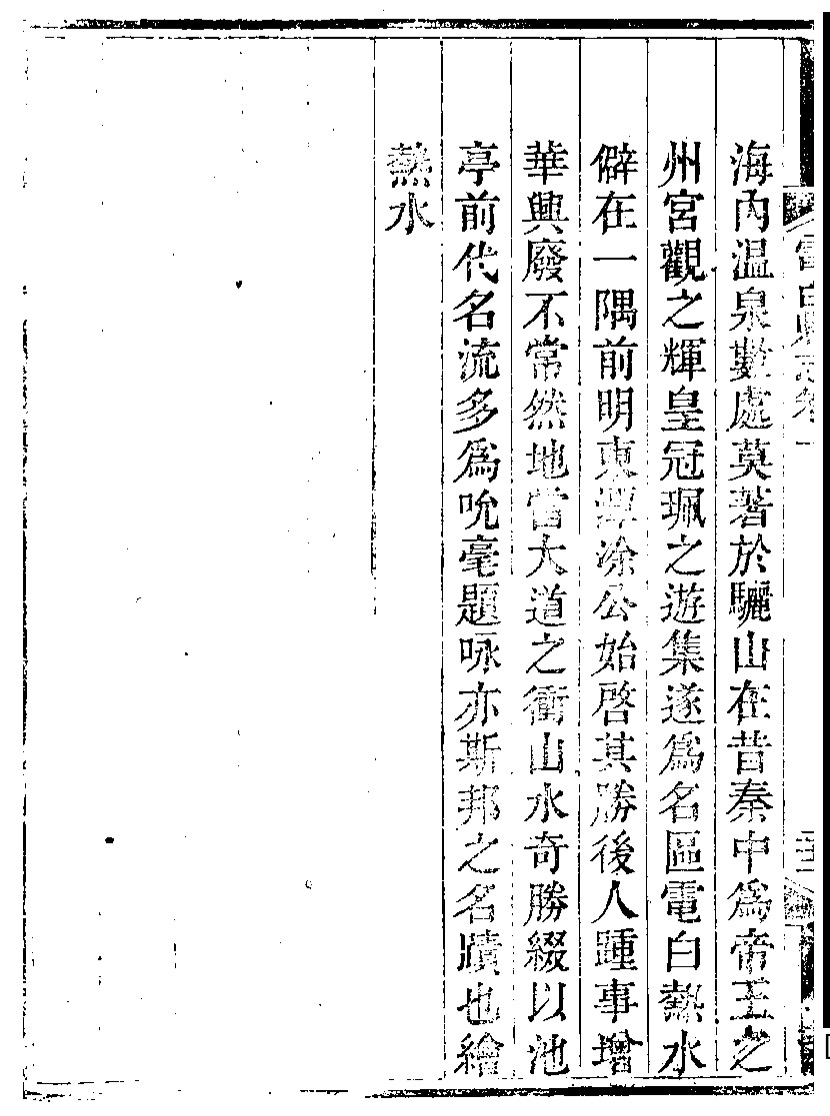 電白縣志卷一
海内温泉數處莫著於驪山在昔秦中爲帝王之
州宮觀之輝皇冠珮之遊集遂爲名區電白熱水
僻在一隅前明東潭凃公始啓其勝後人踵事增
華興廢不常然地當大道之衝山水奇勝綴以池
亭前代名流多爲吮毫題咏亦斯邦之名蹟也繪
熱水